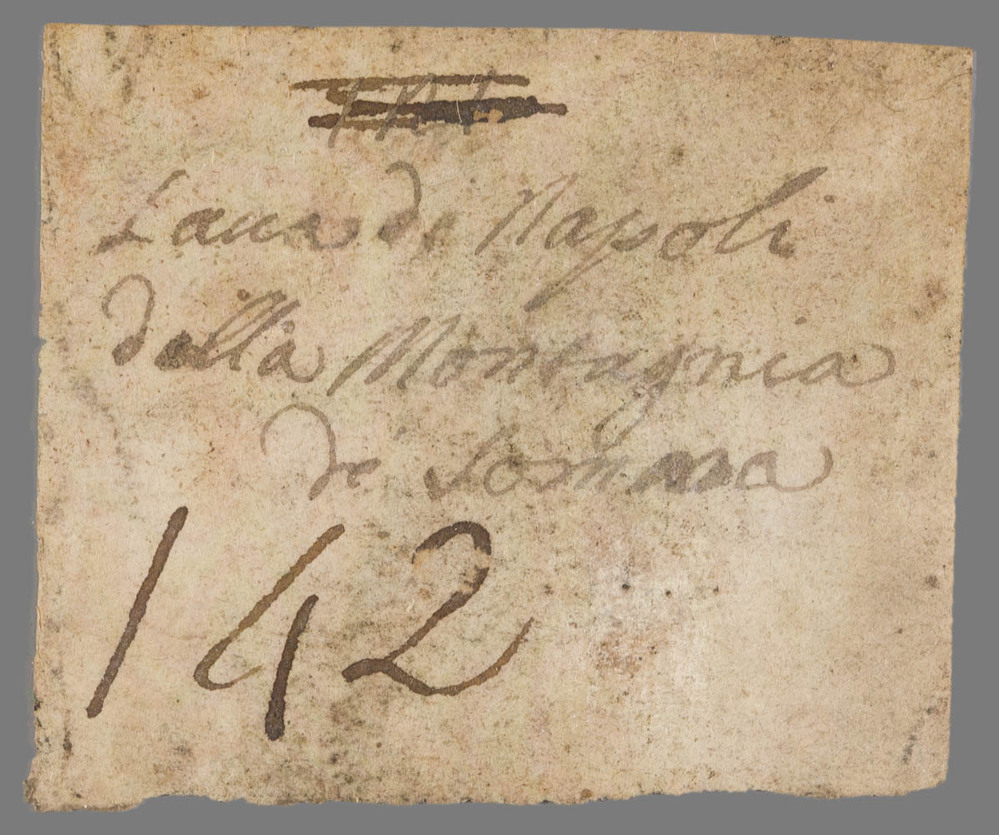 Laua di Napoli
della Montagnia
di Somma
142